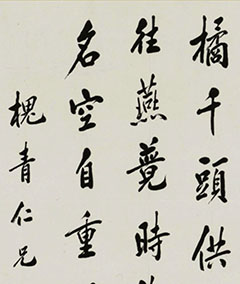 橘千頭供
往燕薨時
名空自重
槐青仁兄